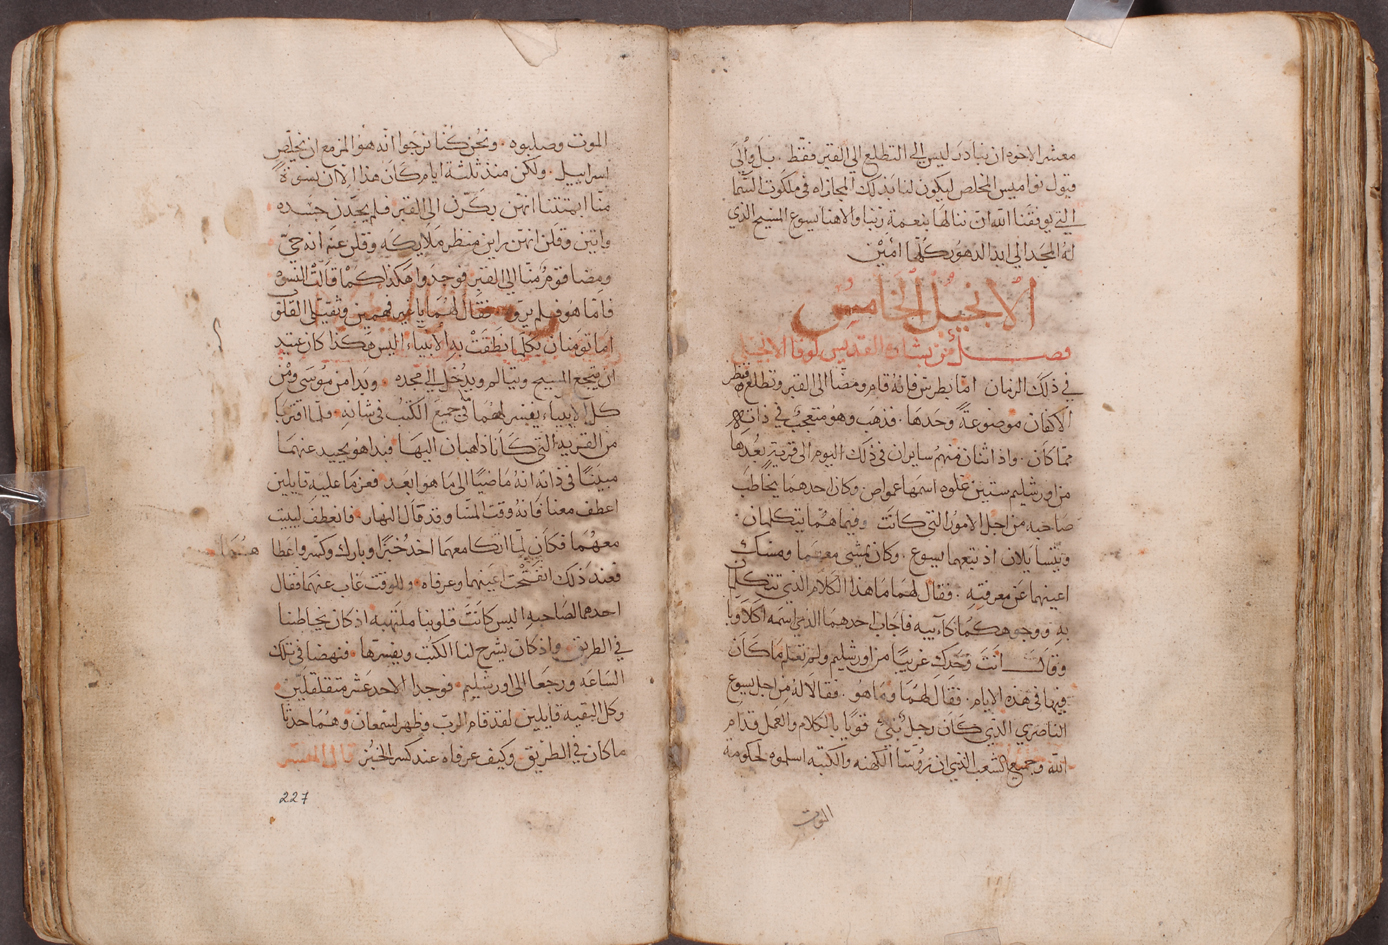 معشر الاخوه ان نبادر ليس الى التطلع الى القبر فقط . بل والى
قبول نواميس المخلص ليكون لنا بذلك المجازاه في ملكوت السما
التي يوفقنا الله ان ننالها بنعمة ربنا والاهنا يسوع المسيح الذي
له المجد الى ابد الدهور كلها امين
الانجيل الخامس
فصل من بشارة القديس لوقا الانجيلي
في ذلك الزمان اما بطرس فانه قام ومضا الى القبر وتطلع فنظر
الاكفان موضوعة وحدها . فذهب وهو متعجب في ذاته
مما كان . واذا اثنان منهم سايران في ذلك اليوم الى قرية بعدها
من اورشليم ستين غلوه اسمها عمواص . وكان احدهما يخاطب
صاحبه من اجل الامور التي كانت وفيما هما يتكلمان .
ويتسايلان اذ تبعهما يسوع . وكان يمشي معهما ومسك
اعينهما عن معرفته . فقال لهما ما هذا الكلام الذي تتكلما
به ووجوهكما كآيبه فاجاب احدهما الذي اسمه اكلاوبا
وقال انت وحدك غريبًا من اورشليم ولم تعلم ما كان
فيها في هذه الايام . فقال لهما وما هو . فقالا له من اجل يسوع
الناصري الذي كان رجل نبي قويا بالكلام والعمل قدام
الله وجميع الشعب الذي ان رؤسا الكهنه والكتبه اسلموه لحكومة
الموت
الموت وصلبوه . ونحن كنا نرجوا انه هو المزمع ان يخلص
اسراييل . ولكن منذ ثلثة ايام كان هذا الا ان نسوة
منا ابهتتنا انهن بكرن الى القبر فلم يجدن جسده
واتين وقلن انهن راين منظر ملايكه وقلن عنه انه حي
ومضا قوم منا الى القبر فوجدوا هكذا كما قالت النسوه
فاما هو فلم يروه فقال لهما يا غير فهمين وثقيلي القلوب
اما تومنان بكلما نطقت به الانبياء اليس هكذا كان عتيد
ان يتجع المسيح ويتالم ويدخل الى مجده . وبدا من موسى ومن
كل الانبياء يفسر لهما في جميع الكتب في شانه . فلما اقتربا
من القريه التي كانا ذاهبان اليها فبدا هو يحيد عنهما
مبينا في ذاته انه ماضيًا الى ما هو ابعد . فعزما عليه قايلين
اعطف معنا فانه وقت المسا وقد مال النهار . فانعطف ليبيت
معهما فكان لما اتكا معهما اخذ خبزًا وبارك وكسر واعطاهما
فعند ذلك انفتحت اعينهما وعرفاه . وللوقت غاب عنهما فقال
احدهما لصاحبه اليس كانت قلوبنا ملتهبه اذ كان يخاطبنا
في الطريق . واذ كان يشرح لنا الكتب ويفسرها . فنهضا في تلك
الساعه ورجعا الى اورشليم . فوجدا الاحد عشر متقلقلين
وكل البقيه قايلين لقد قام الرب وظهر لسمعان وهما حدثا
ما كان في الطريق . وكيف عرفاه عند كسر الخبز قال المفسر
227